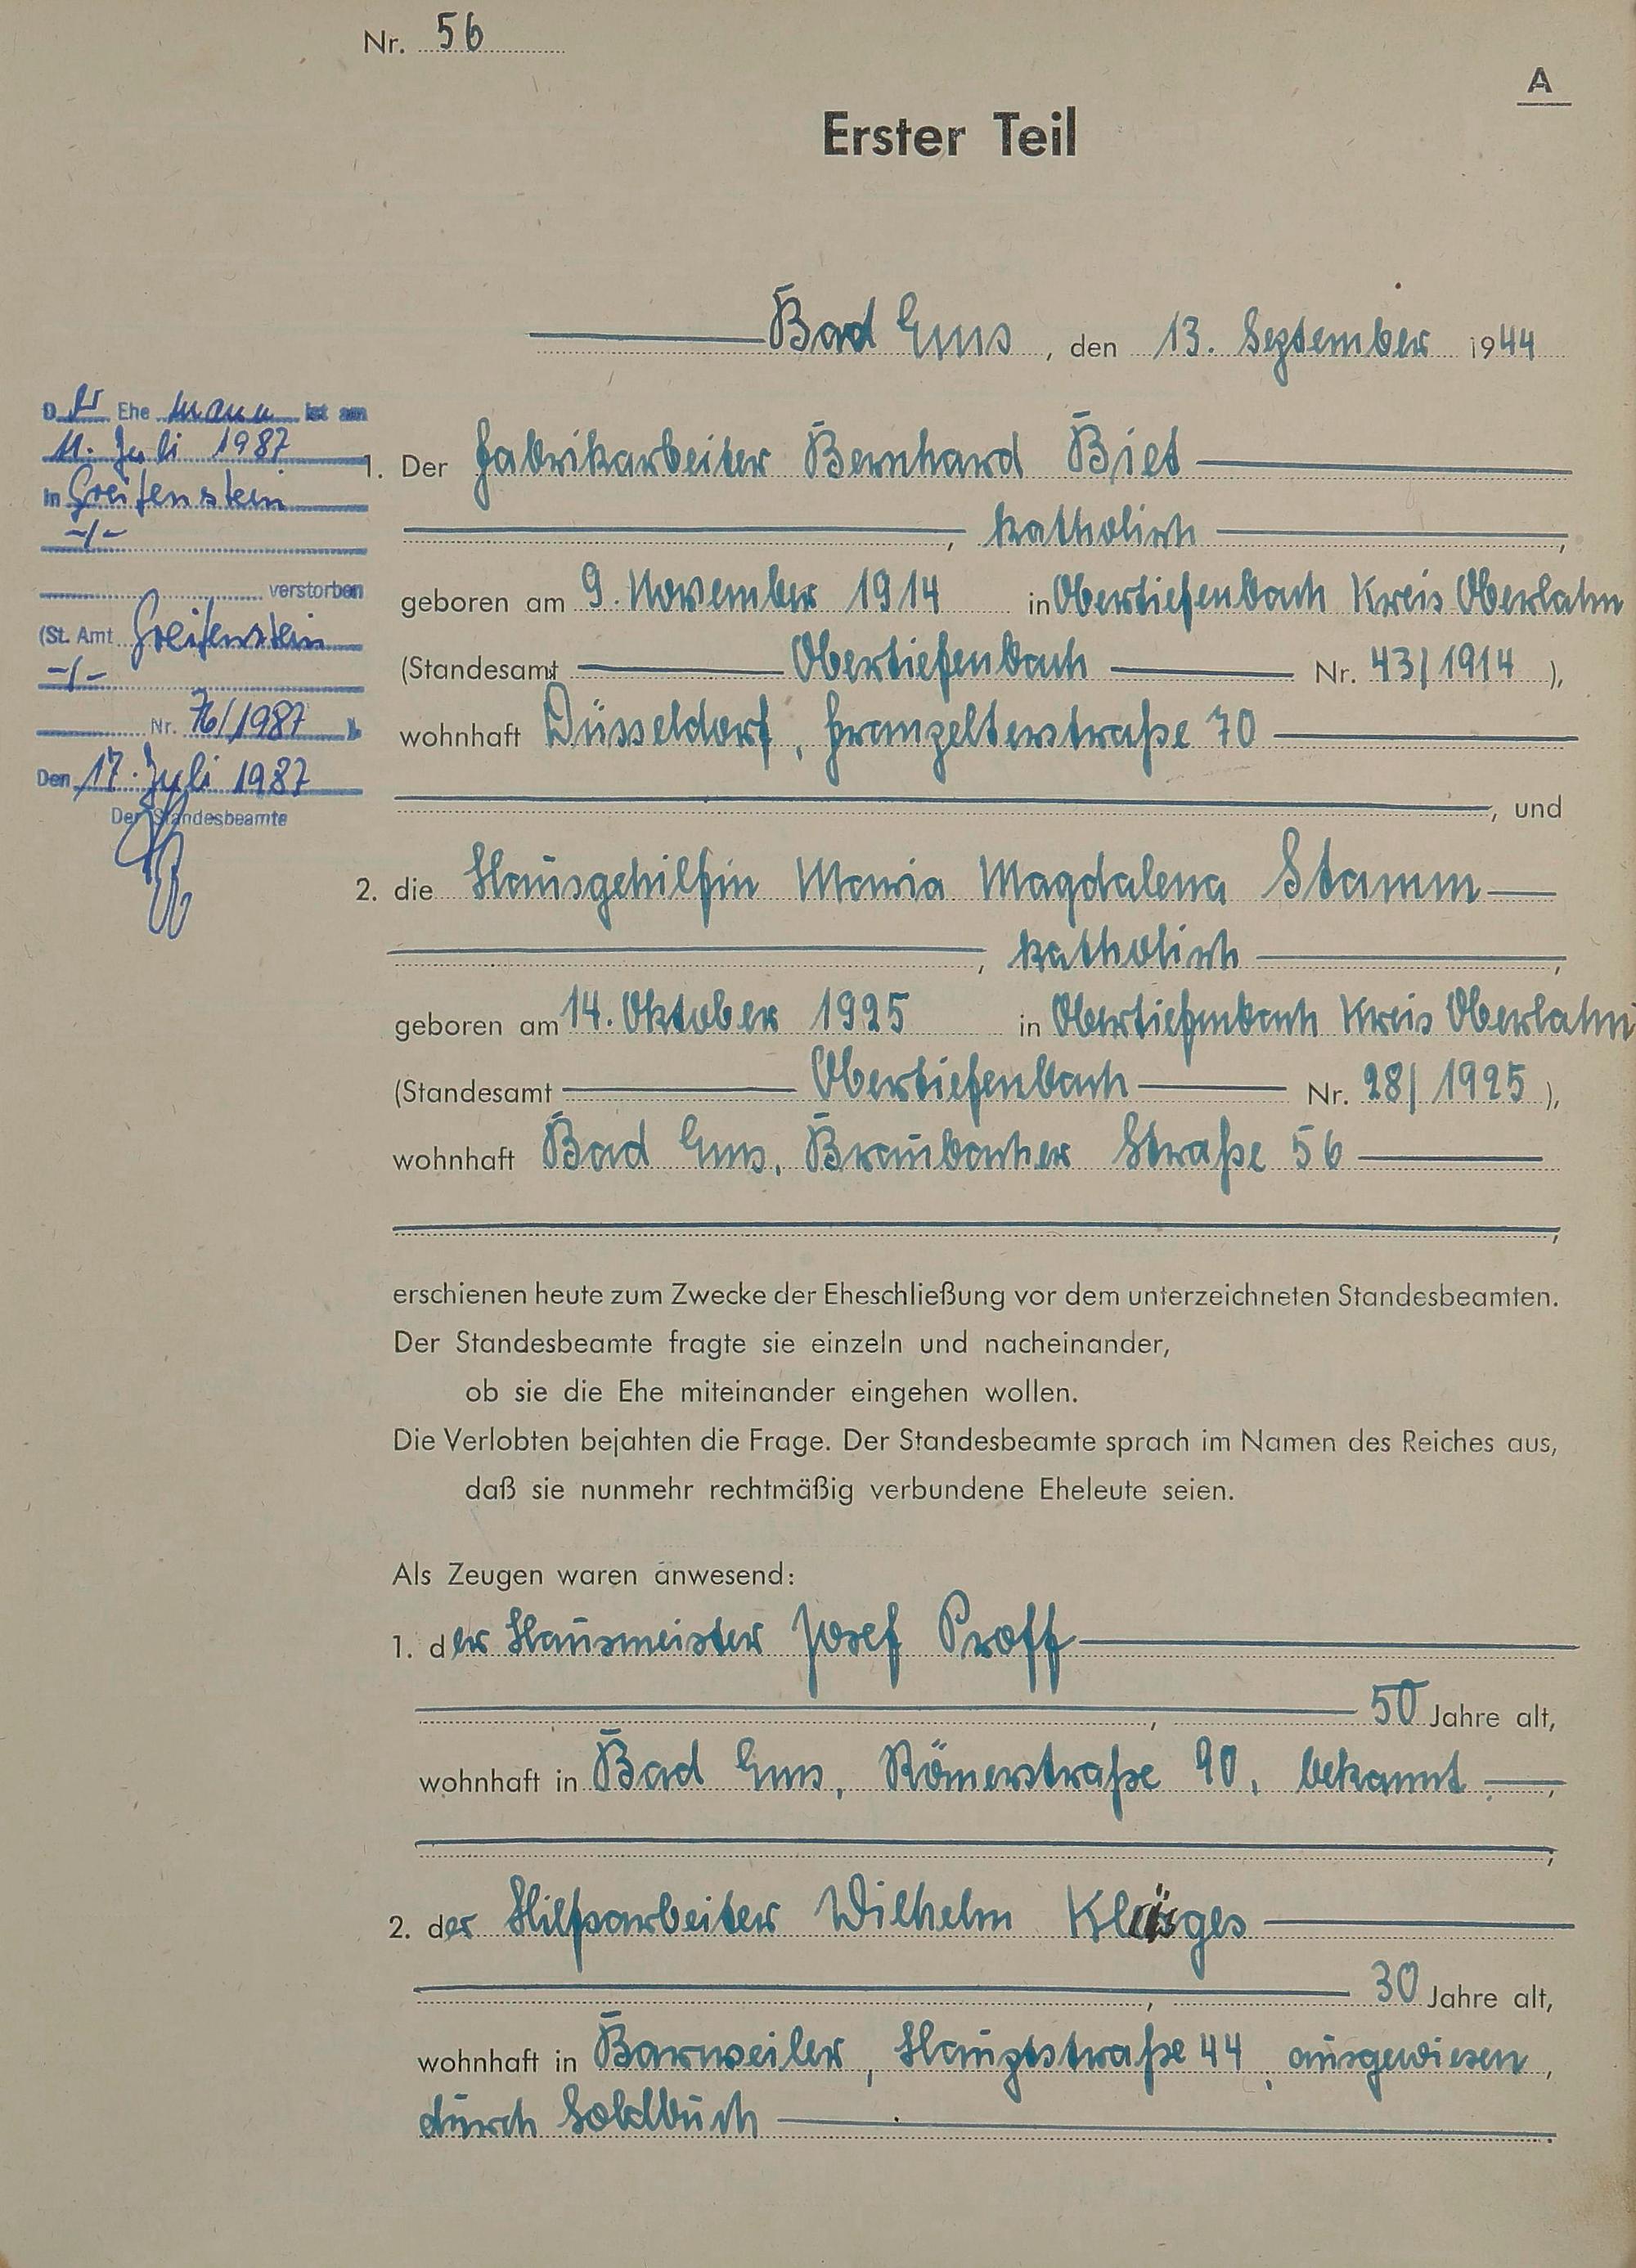 Nr. 56
A
Erster Teil
Bad Ems, den 13. September 1944
Der Ehemann ist am
11. Juli 1987
in Greifenstein
-/-
verstorben
(St. Amt Greifenstein
-/-
Nr. 76/1987 ).
Den 17. Juli 1987
Der Standesbeamte
1. Der Fabrikarbeiter Bernhard Biet
, katholisch ,
geboren am 9. November 1914 in Obertiefenbach Kreis Oberlahn
(Standesamt Obertiefenbach Nr. 43/1914 ),
wohnhaft Düsseldorf, 70
, und
2. die Hausgehilfin Maria Magdalena Stamm
, katholisch ,
geboren am 14. Oktober 1925 in Obertiefenbach Kreis Oberlahn
(Standesamt Obertiefenbach Nr. 28/1925 ),
wohnhaft Bad Ems, Braubacher Straße 56
,
erschienen heute zum Zwecke der Eheschließung vor dem unterzeichneten Standesbeamten.
Der Standesbeamte fragte sie einzeln und nacheinander,
ob sie die Ehe miteinander eingehen wollen.
Die Verlobten bejahten die Frage. Der Standesbeamte sprach im Namen des Reiches aus,
daß sie nunmehr rechtmäßig verbundene Eheleute seien.
Als Zeugen waren anwesend:
1. der Hausmeister Josef Proff
, 50 Jahre alt,
wohnhaft in Bad Ems, Römerstraße 90, bekannt ,
,
2. der Hilfsarbeiter Wilhelm
, 30 Jahre alt,
wohnhaft in Barweiler, Hauptstraße 44, ausgewiesen,
durch Soldbuch .